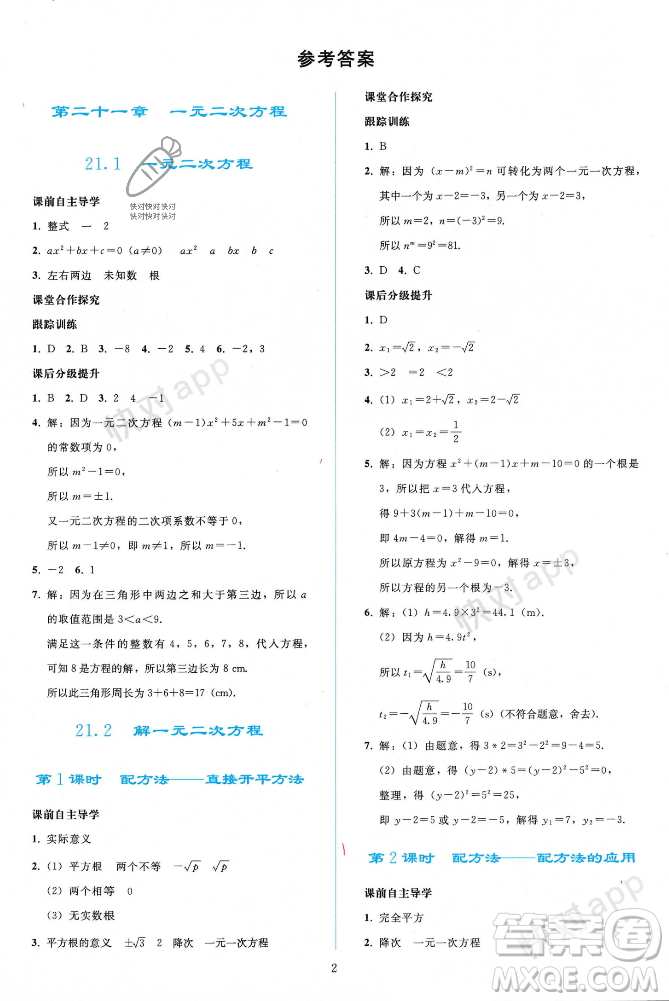 参考答案
第二十一章 一元二次方程
21.1 一元二次方程
快对快对快对
快对快对快对
课前自主导学
1. 整式 一 2
2. ax²+bx+c=0(a≠0) ax² a bx b c
3. 左右两边 未知数 根
课堂合作探究
跟踪训练
1. D 2. B 3. －8 4. －2 5. 4 6. －2，3
课后分级提升
1. B 2. D 3. 2 4 －1
4. 解：因为一元二次方程(m－1)x²＋5x＋m²－1＝0
的常数项为0，
所以 m²－1＝0，
所以 m＝±1.
又一元二次方程的二次项系数不等于0，
所以 m－1≠0，即 m≠1，所以 m＝－1.
5. －2 6. 1
7. 解：因为在三角形中两边之和大于第三边，所以 a
的取值范围是 3＜a＜9.
满足这一条件的整数有 4，5，6，7，8，代入方程，
可知 8 是方程的解，所以第三边的长是 8 cm.
所以此三角形周长为 3＋6＋8＝17(cm).
21.2 解一元二次方程
第 1 课时 配方法——直接开平方法
课前自主导学
1. 实际意义
2. (1) 平方根 两个不等 －√p √p
(2) 两个相等 0
(3) 无实数根
3. 平方根的意义 ±√3 2 降次 一元一次方程
课堂合作探究
跟踪训练
1. B
2. 解：因为(x－m)²＝n 可转化为两个一元一次方程，
其中一个一元一次方程是 x－2＝3，
所以另一个方程是 x－2＝－3，
所以 m＝2，n＝(－3)²＝9.
所以 nᵐ＝9²＝81.
3. D 4. C
课后分级提升
1. D
2. x₁＝√2，x₂＝－√2
3. ＞2 ＝2 ＜2
4. (1) x₁＝2＋√2，x₂＝2－√2
(2) x₁＝x₂＝1/2
5. 解：因为方程 x²＋(m－1)x＋m－10＝0 的一个根是
3，所以把 x＝3 代入方程，
得 9＋3(m－1)＋m－10＝0，
即 4m－4＝0，解得 m＝1，
所以原方程为 x²－9＝0，解得 x＝±3，
所以方程的另一个根为－3.
6. 解：(1) h＝4.9×3²＝44.1(m).
(2) 因为 h＝4.9t²，
所以 t₁＝√(h/4.9)＝10/7(s)，
t₂＝－√(h/4.9)＝－10/7(s)(不符合题意，舍去).
7. 解：(1) 由题意，得 3*2＝3²－2²＝9－4＝5.
(2) 由题意，得(y－2)*5＝(y－2)²－5²＝0，
即 y－2＝5 或 y－2＝－5，解得 y₁＝7，y₂＝－3.
第 2 课时 配方法——配方法的应用
课前自主导学
1. 完全平方
2. 降次 一元一次方程
2
快对app
快对app
快对app
答案圈
MXQE.COM